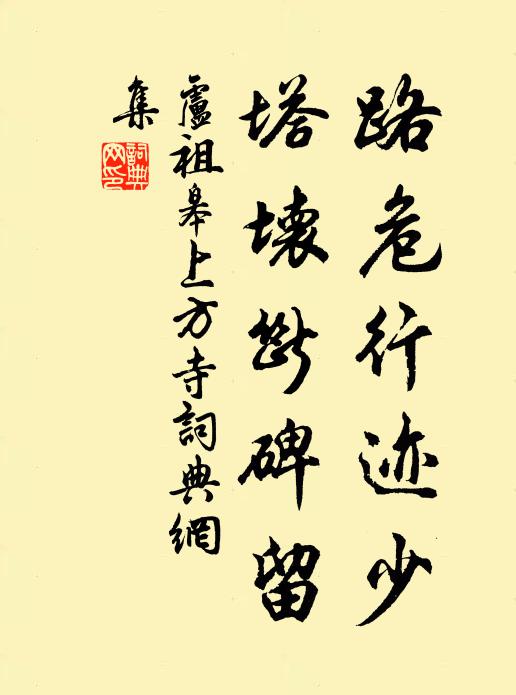 路危行迹少
塔壞斷碑留
盧祖皋上方寺詞典網
集
詞典網印